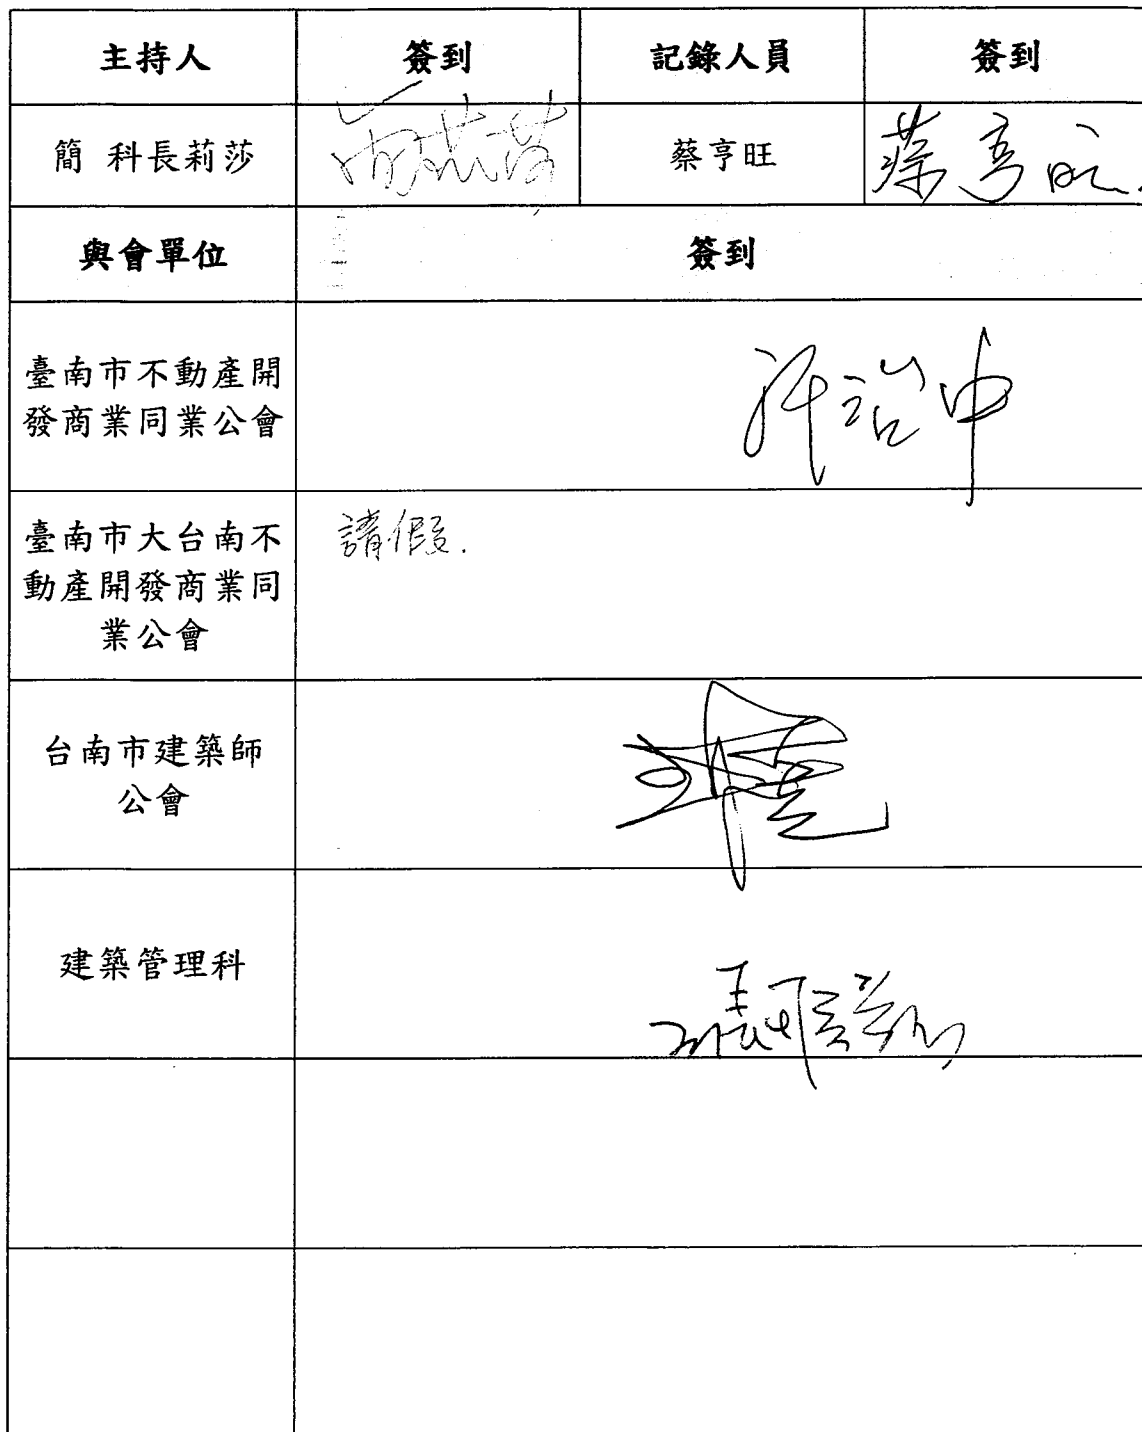 主持人 簽到 記錄人員 簽到
簡 科長莉莎 簡莉莎 蔡亨旺 蔡亨旺.
與會單位 簽到
臺南市不動產開
發商業同業公會
臺南市大台南不
動產開發商業同
業公會
請假.
台南市建築師
公會
建築管理科